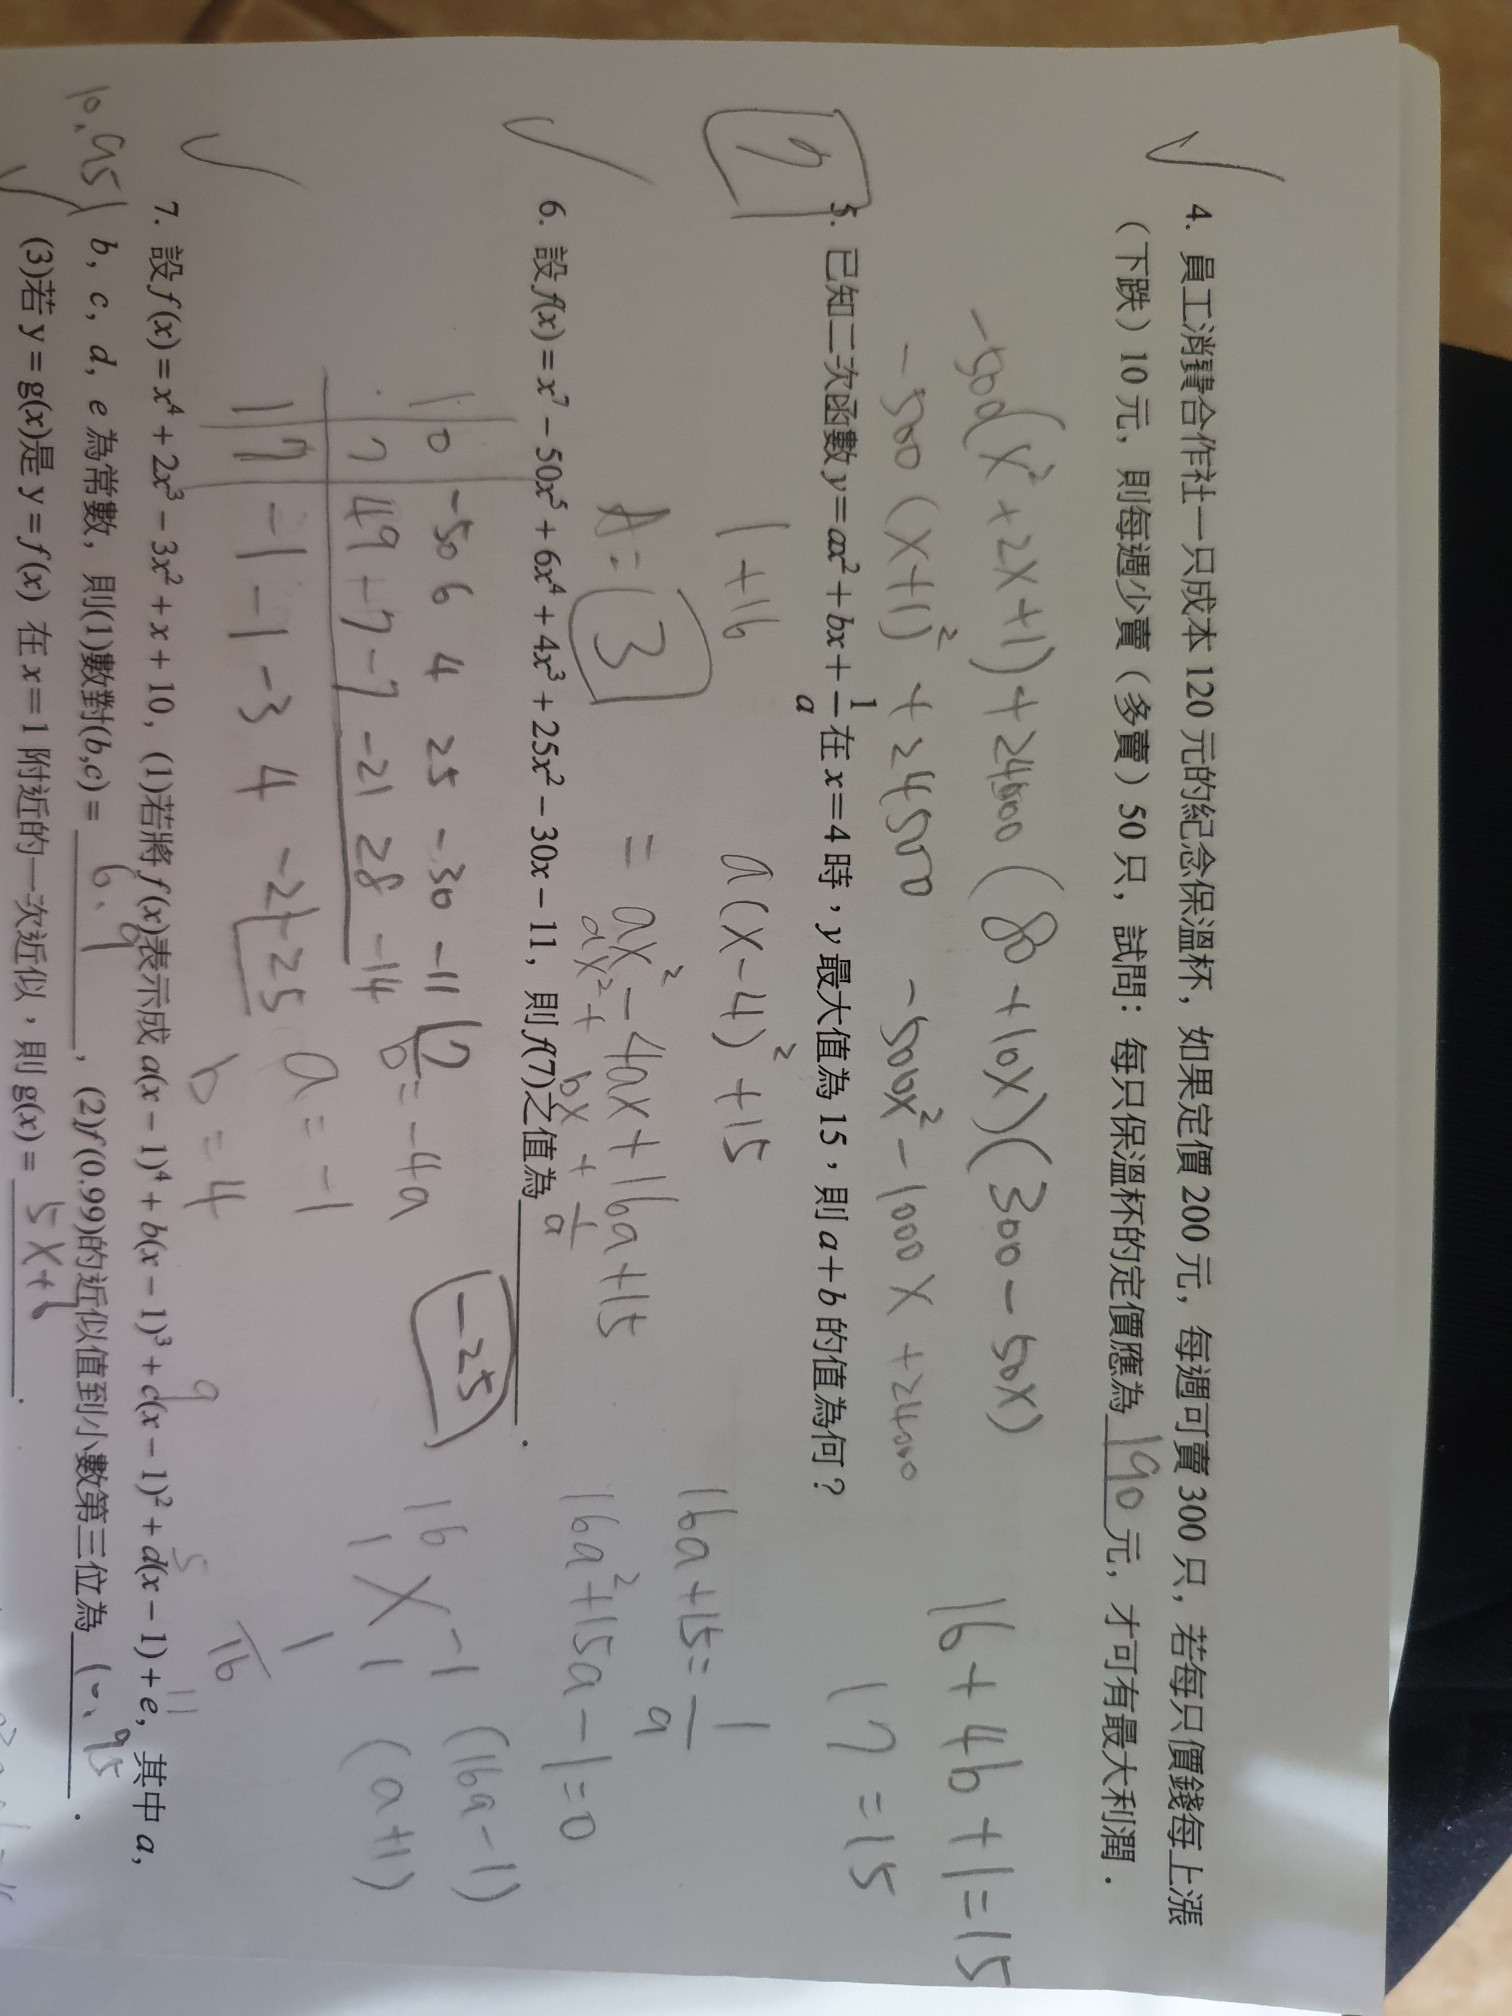 4. 員工消費合作社一只成本 120 元的紀念保溫杯，如果定價 200 元，每週可賣 300 只，若每只價錢每上漲
（下跌）10 元，則每週少賣（多賣）50 只，試問：每只保溫杯的定價應為 190 元，才可有最大利潤．
(80+10x)(300-50x)
-500(x²+2x+1)+24000
-500x²-1000x+24000
-500(x+1)²+24500
16+4b+1=15
17=15
7
5. 已知二次函數 y=ax²+bx+1/a 在 x=4 時，y 最大值為 15，則 a+b 的值為何？
1+16
a(x-4)²+15
16a+15=1/a
A=3
=ax²-4ax+16a+15
ax²+bx+1/a
16a²+15a-1=0
6. 設 f(x)=x⁷-50x⁵+6x⁴+4x³+25x²-30x-11，則 f(7)之值為
-25
1 0 -50 6 4 25 -30 -11 7
7 49 -7 -7 -21 28 -14
1 7 -1 -1 -3 4 -2 -25
b=-4a
a=-1
b=4
16 -1 (16a-1)
1 1 (a+1)
1/16
7. 設 f(x)=x⁴+2x³-3x²+x+10，(1)若將 f(x)表示成 a(x-1)⁴+b(x-1)³+c(x-1)²+d(x-1)+e，其中 a，
9 5 11
b，c，d，e 為常數，則(1)數對(b,c)= 6、9，(2)f(0.99)的近似值到小數第三位為 10、95．
10.951
(3)若 y=g(x)是 y=f(x) 在 x=1 附近的一次近似，則 g(x)= 5x+6．